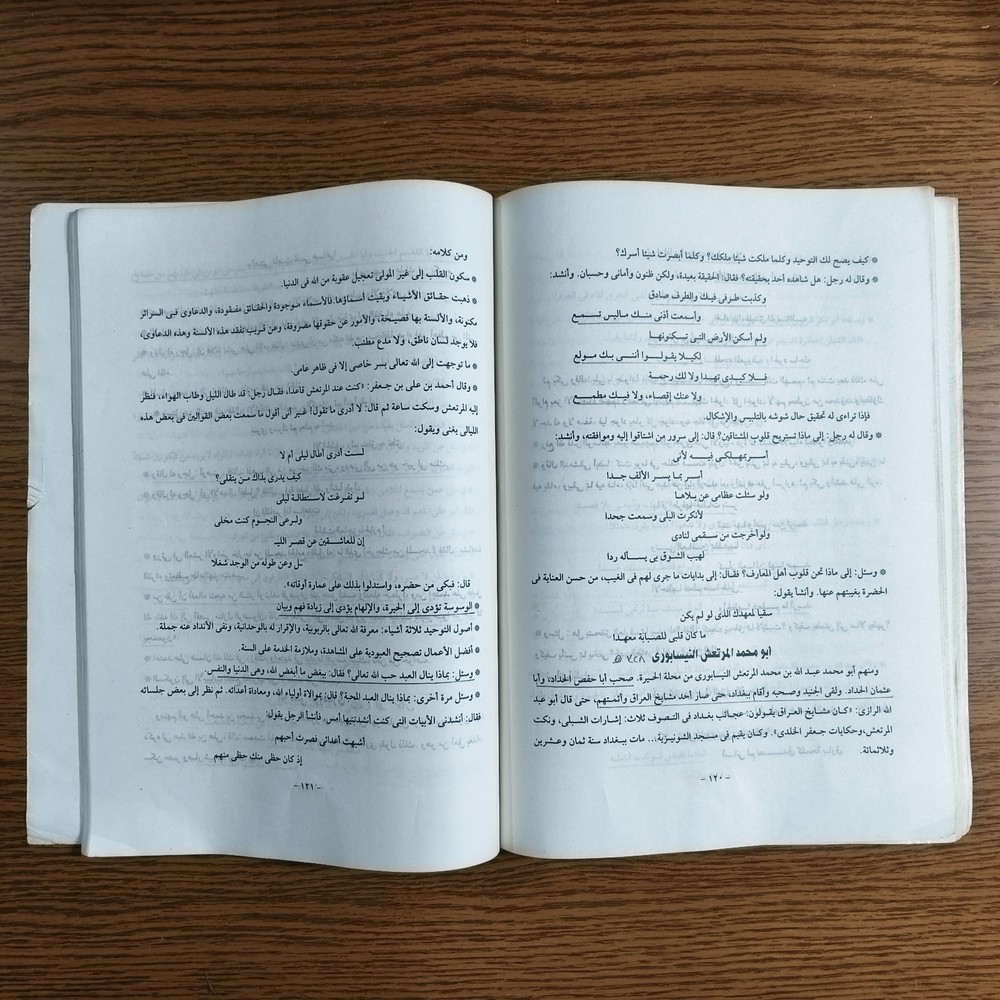 * كيف يصح لك التوحيد وكلما ملكت شيئا ملكك؟ وكلما أبصرت شيئا أسرك؟
* وقال له رجل: هل شاهده أحد بحقيقته؟ فقال: الحقيقة بعيدة، ولكن ظنون وأمانى وحسبان. وأنشد:
وكذبت طرفى فيك والطرف صادق
وأسمعت أذنى منك ماليس تسمع
ولم أسكن الأرض التى تسكنونها
لكيلا يقولوا أننى بك مولع
فلا كبدى تهدا ولا لك رحمة
ولا عنك إقصاء، ولا فيك مطمع
فإذا تراءى له تحقيق حال شوشه بالتلبيس والإشكال.
* وقال له رجل: إلى ماذا تستريح قلوب المشتاقين؟ قال: إلى سرور من اشتاقوا إليه وموافقته، وأنشد:
أسر بمهلكى فيه لأنى
أسر بما يسر الألف جدا
ولو سئلت عظامى عن بلاها
لأنكرت البلى وسمعت جحدا
ولو أخرجت من سقمى لنادى
لهيب الشوق بى يسأله ردا
* وسئل: إلى ماذا تحن قلوب أهل المعارف؟ فقال: إلى بدايات ما جرى لهم فى الغيب، من حسن العناية فى
الحضرة بغيبتهم عنها. وأنشأ يقول:
سقيا لمعهدك الذى لو لم يكن
ما كان قلبى للصبابة معهدا
أبو محمد المرتعش النيسابورى
ومنهم أبو محمد عبد الله بن محمد المرتعش النيسابورى من محلة الحيرة. صحب أبا حفص الحداد، وأبا
عثمان الحداد. ولقى الجنيد وصحبه وأقام ببغداد، حتى صار أحد مشايخ العراق وأئمتهم، حتى قال أبو عبد
الله الرازى: «كان مشايخ العراق يقولون: عجائب بغداد فى التصوف ثلاث: إشارات الشبلى، ونكت
المرتعش، وحكايات جعفر الخلدى». وكان يقيم فى مسجد الشونيزية... مات ببغداد سنة ثمان وعشرين
وثلاثمائة.
- ١٢٠ -
ومن كلامه:
* سكون القلب إلى غير المولى تعجيل عقوبة من الله فى الدنيا.
* ذهبت حقائق الأشياء وبقيت أسماؤها. فالأسماء موجودة والحقائق مفقودة، والدعاوى فى السرائر
مكنونة، والألسنة بها فصيحة، والأمور عن حقوقها مصروفة، وعن قريب تفقد هذه الألسنة وهذه الدعاوى،
فلا يوجد لسان ناطق، ولا مدع مطنب.
* ما توجهت إلى الله تعالى بسر خاصى إلا فى ظاهر عامى.
* وقال أحمد بن على بن جعفر: «كنت عند المرتعش قاعدا، فقال رجل: قد طال الليل وطاب الهواء، فنظر
إليه المرتعش وسكت ساعة ثم قال: لا أدرى ما تقول! غير أنى أقول ما سمعت بعض القوالين فى بعض هذه
الليالى يغنى ويقول:
لست أدرى أطال ليلى أم لا
كيف يدرى بذاك من يتقلى؟
لو تفرغت لاستطالة ليلى
ولرعى النجوم كنت مخلى
إن للعاشقين عن قصر الليـ
ـل وعن طوله من الوجد شغلا
قال: فبكى من حضره، واستدلوا بذلك على عمارة أوقاته».
* الوسوسة تؤدى إلى الحيرة، والإلهام يؤدى إلى زيادة فهم وبيان
* أصول التوحيد ثلاثة أشياء: معرفة الله تعالى بالربوبية، والإقرار له بالوحدانية، ونفى الأنداد عنه جملة.
* أفضل الأعمال تصحيح العبودية على المشاهدة، وملازمة الخدمة على السنة.
* وسئل: بماذا ينال العبد حب الله تعالى؟ فقال: ببغض ما أبغض الله، وهى الدنيا والنفس.
* وسئل مرة أخرى: بماذا ينال العبد المحبة؟ قال: بموالاة أولياء الله، ومعاداة أعدائه. ثم نظر إلى بعض جلسائه
فقال: أنشدنى الأبيات التى كنت أنشدتنيها أمس. فأنشأ الرجل يقول:
أشبهت أعدائى فصرت أحبهم
إذ كان حظى منك حظى منهم
- ١٢١ -